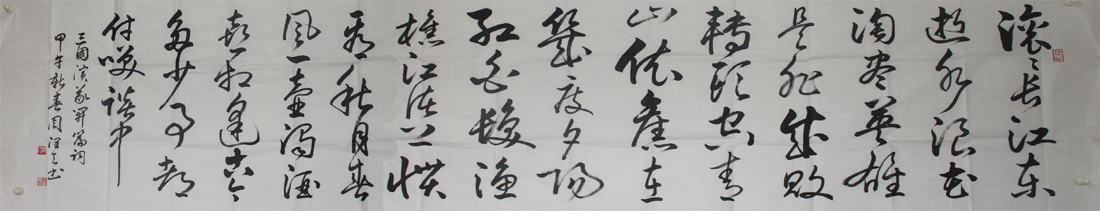 滚〻长江东
逝水浪花
淘尽英雄
是非成败
轉头空青
山依舊在
幾度夕阳
红白髮渔
樵江渚上惯
看秋月春
风一壶濁酒
喜相逢古今
多少事都
付笑谈中
三国演义开篇词
甲午新春周
书